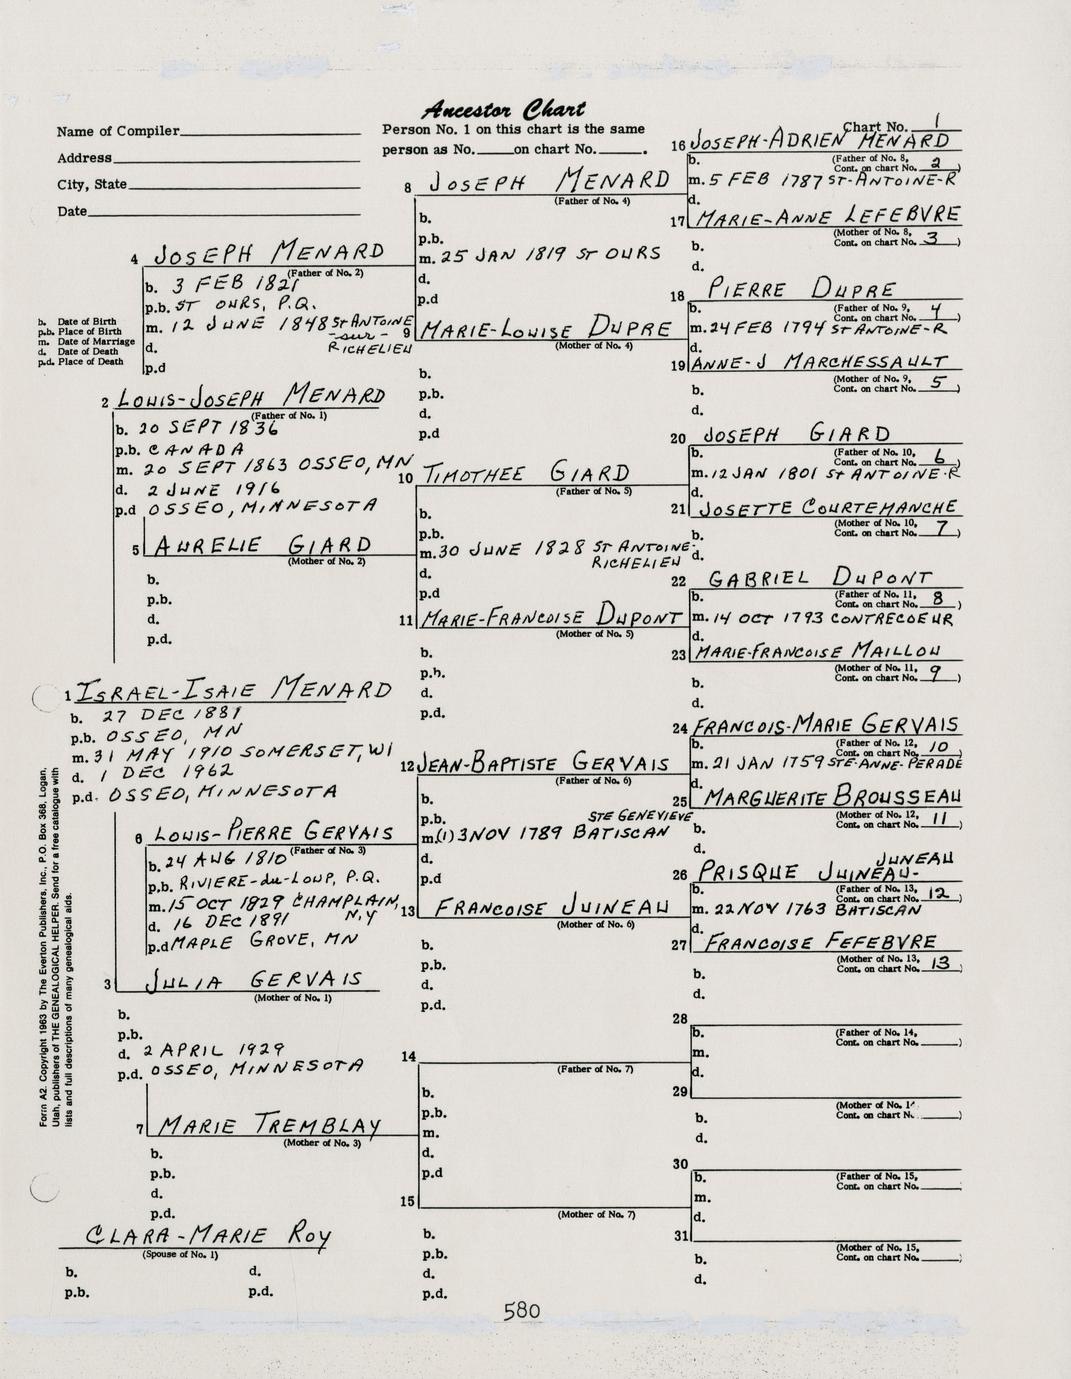 Ancestor Chart
Name of Compiler
Address
City, State
Date
Person No. 1 on this chart is the same
person as No. on chart No. .
Chart No. 1
b. Date of Birth
p.b. Place of Birth
m. Date of Marriage
d. Date of Death
p.d. Place of Death
1 ISRAEL-ISAIE MENARD
b. 27 DEC 1881
p.b. OSSEO, MN
m. 31 MAY 1910 SOMERSET, WI
d. 1 DEC 1962
p.d. OSSEO, MINNESOTA
2 LOUIS-JOSEPH MENARD
(Father of No. 1)
b. 20 SEPT 1836
p.b. CANADA
m. 20 SEPT 1863 OSSEO, MN
d. 2 JUNE 1916
p.d OSSEO, MINNESOTA
3 JULIA GERVAIS
(Mother of No. 1)
b.
p.b.
d. 2 APRIL 1929
p.d. OSSEO, MINNESOTA
4 JOSEPH MENARD
(Father of No. 2)
b. 3 FEB 1821
p.b. ST OURS, P.Q.
m. 12 JUNE 1848 St ANTOINE
-sur-
RICHELIEU
d.
p.d
5 AURELIE GIARD
(Mother of No. 2)
b.
p.b.
d.
p.d.
6 LOUIS-PIERRE GERVAIS
(Father of No. 3)
b. 24 AUG 1810
p.b. RIVIERE-du-LOUP, P.Q.
m. 15 OCT 1829 CHAMPLAIN,
N.Y
d. 16 DEC 1891
p.d MAPLE GROVE, MN
7 MARIE TREMBLAY
(Mother of No. 3)
b.
p.b.
d.
p.d.
CLARA-MARIE ROY
(Spouse of No. 1)
b. d.
p.b. p.d.
8 JOSEPH MENARD
(Father of No. 4)
b.
p.b.
m. 25 JAN 1819 ST OURS
d.
p.d
9 MARIE-LOUISE DUPRE
(Mother of No. 4)
b.
p.b.
d.
p.d
10 TIMOTHEE GIARD
(Father of No. 5)
b.
p.b.
m. 30 JUNE 1828 ST ANTOINE-
RICHELIEU
d.
p.d
11 MARIE-FRANCOISE DUPONT
(Mother of No. 5)
b.
p.b.
d.
p.d.
12 JEAN-BAPTISTE GERVAIS
(Father of No. 6)
b.
p.b.
STE GENEVIEVE
m.(1) 3 NOV 1789 BATISCAN
d.
p.d
13 FRANCOISE JUINEAU
(Mother of No. 6)
b.
p.b.
d.
p.d.
14
(Father of No. 7)
b.
p.b.
m.
d.
p.d
15
(Mother of No. 7)
b.
p.b.
d.
p.d.
16 JOSEPH-ADRIEN MENARD
(Father of No. 8,
Cont. on chart No. 2)
b.
m. 5 FEB 1787 ST-ANTOINE-R
d.
17 MARIE-ANNE LEFEBVRE
(Mother of No. 8,
Cont. on chart No. 3)
b.
d.
18 PIERRE DUPRE
(Father of No. 9,
Cont. on chart No. 4)
b.
m. 24 FEB 1794 ST ANTOINE-R
d.
19 ANNE-J MARCHESSAULT
(Mother of No. 9,
Cont. on chart No. 5)
b.
d.
20 JOSEPH GIARD
(Father of No. 10,
Cont. on chart No. 6)
b.
m. 12 JAN 1801 St ANTOINE-R
d.
21 JOSETTE COURTEMANCHE
(Mother of No. 10,
Cont. on chart No. 7)
b.
d.
22 GABRIEL DUPONT
(Father of No. 11,
Cont. on chart No. 8)
b.
m. 14 OCT 1793 CONTRECOEUR
d.
23 MARIE-FRANCOISE MAILLOU
(Mother of No. 11,
Cont. on chart No. 9)
b.
d.
24 FRANCOIS-MARIE GERVAIS
(Father of No. 12,
Cont. on chart No. 10)
b.
m. 21 JAN 1759 STE-ANNE-PERADE
d.
25 MARGUERITE BROUSSEAU
(Mother of No. 12,
Cont. on chart No. 11)
b.
d.
JUNEAU
26 PRISQUE JUINEAU-
(Father of No. 13,
Cont. on chart No. 12)
b.
m. 22 NOV 1763 BATISCAN
d.
27 FRANCOISE FEFEBVRE
(Mother of No. 13,
Cont. on chart No. 13)
b.
d.
28
(Father of No. 14,
Cont. on chart No. )
b.
m.
d.
29
(Mother of No. 1
Cont. on chart N. )
b.
d.
30
(Father of No. 15,
Cont. on chart No.
b.
m.
d.
31
(Mother of No. 15,
Cont. on chart No. )
b.
d.
Form A2. Copyright 1963 by The Everton Publishers, Inc., P.O. Box 368, Logan,
Utah, publishers of THE GENEALOGICAL HELPER. Send for a free catalogue with
lists and full descriptions of many genealogical aids.
580